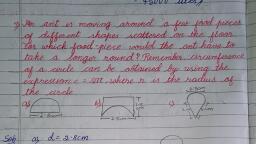 45000 liter,
An ant is moving around a few food pieces
of different shapes scattered on the floor
for which food-piece would the ant have to
take a longer round? Remember, circumference
of a circle can be obtained by using the
expression c = 2πr, where r is the radius of
the circle
a) b) c)
2.8cm
Sol: a) d = 2.8cm